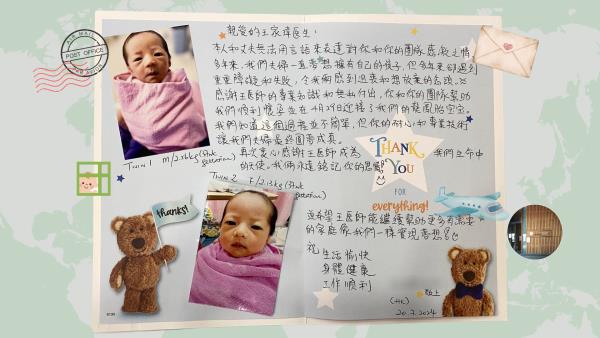 AIR MAIL
POST OFFICE
親愛的王家瑋醫生:
本人和丈夫無法用言語來表達對你和你的團隊感激之情
多年來,我們夫婦一直夢想擁有自己的孩子,但多年來卻遇到
重重障礙和失敗,令我倆感到沮喪和想放棄的念頭。
感謝王醫師的專業知識和無私付出,你和你的團隊幫助
我們順利懷孕並在4月29日迎接了我們的龍鳳胎寶寶。
我們知道這個過程並不簡單,但你的耐心和專業技術
讓我們夫婦最終圓夢成真。
再次衷心感謝王醫師成為我們生命中
的天使。我倆永遠銘記你的恩惠
TWIN 1 M/
TWIN 2 F/2.13kg
THANK
YOU
FOR
everything!
thanks!
並希望王醫師能繼續幫助更多有需要
的家庭像我們一樣實現夢想!
祝 生活愉快
身體健康
工作順利
上
20.7.2024